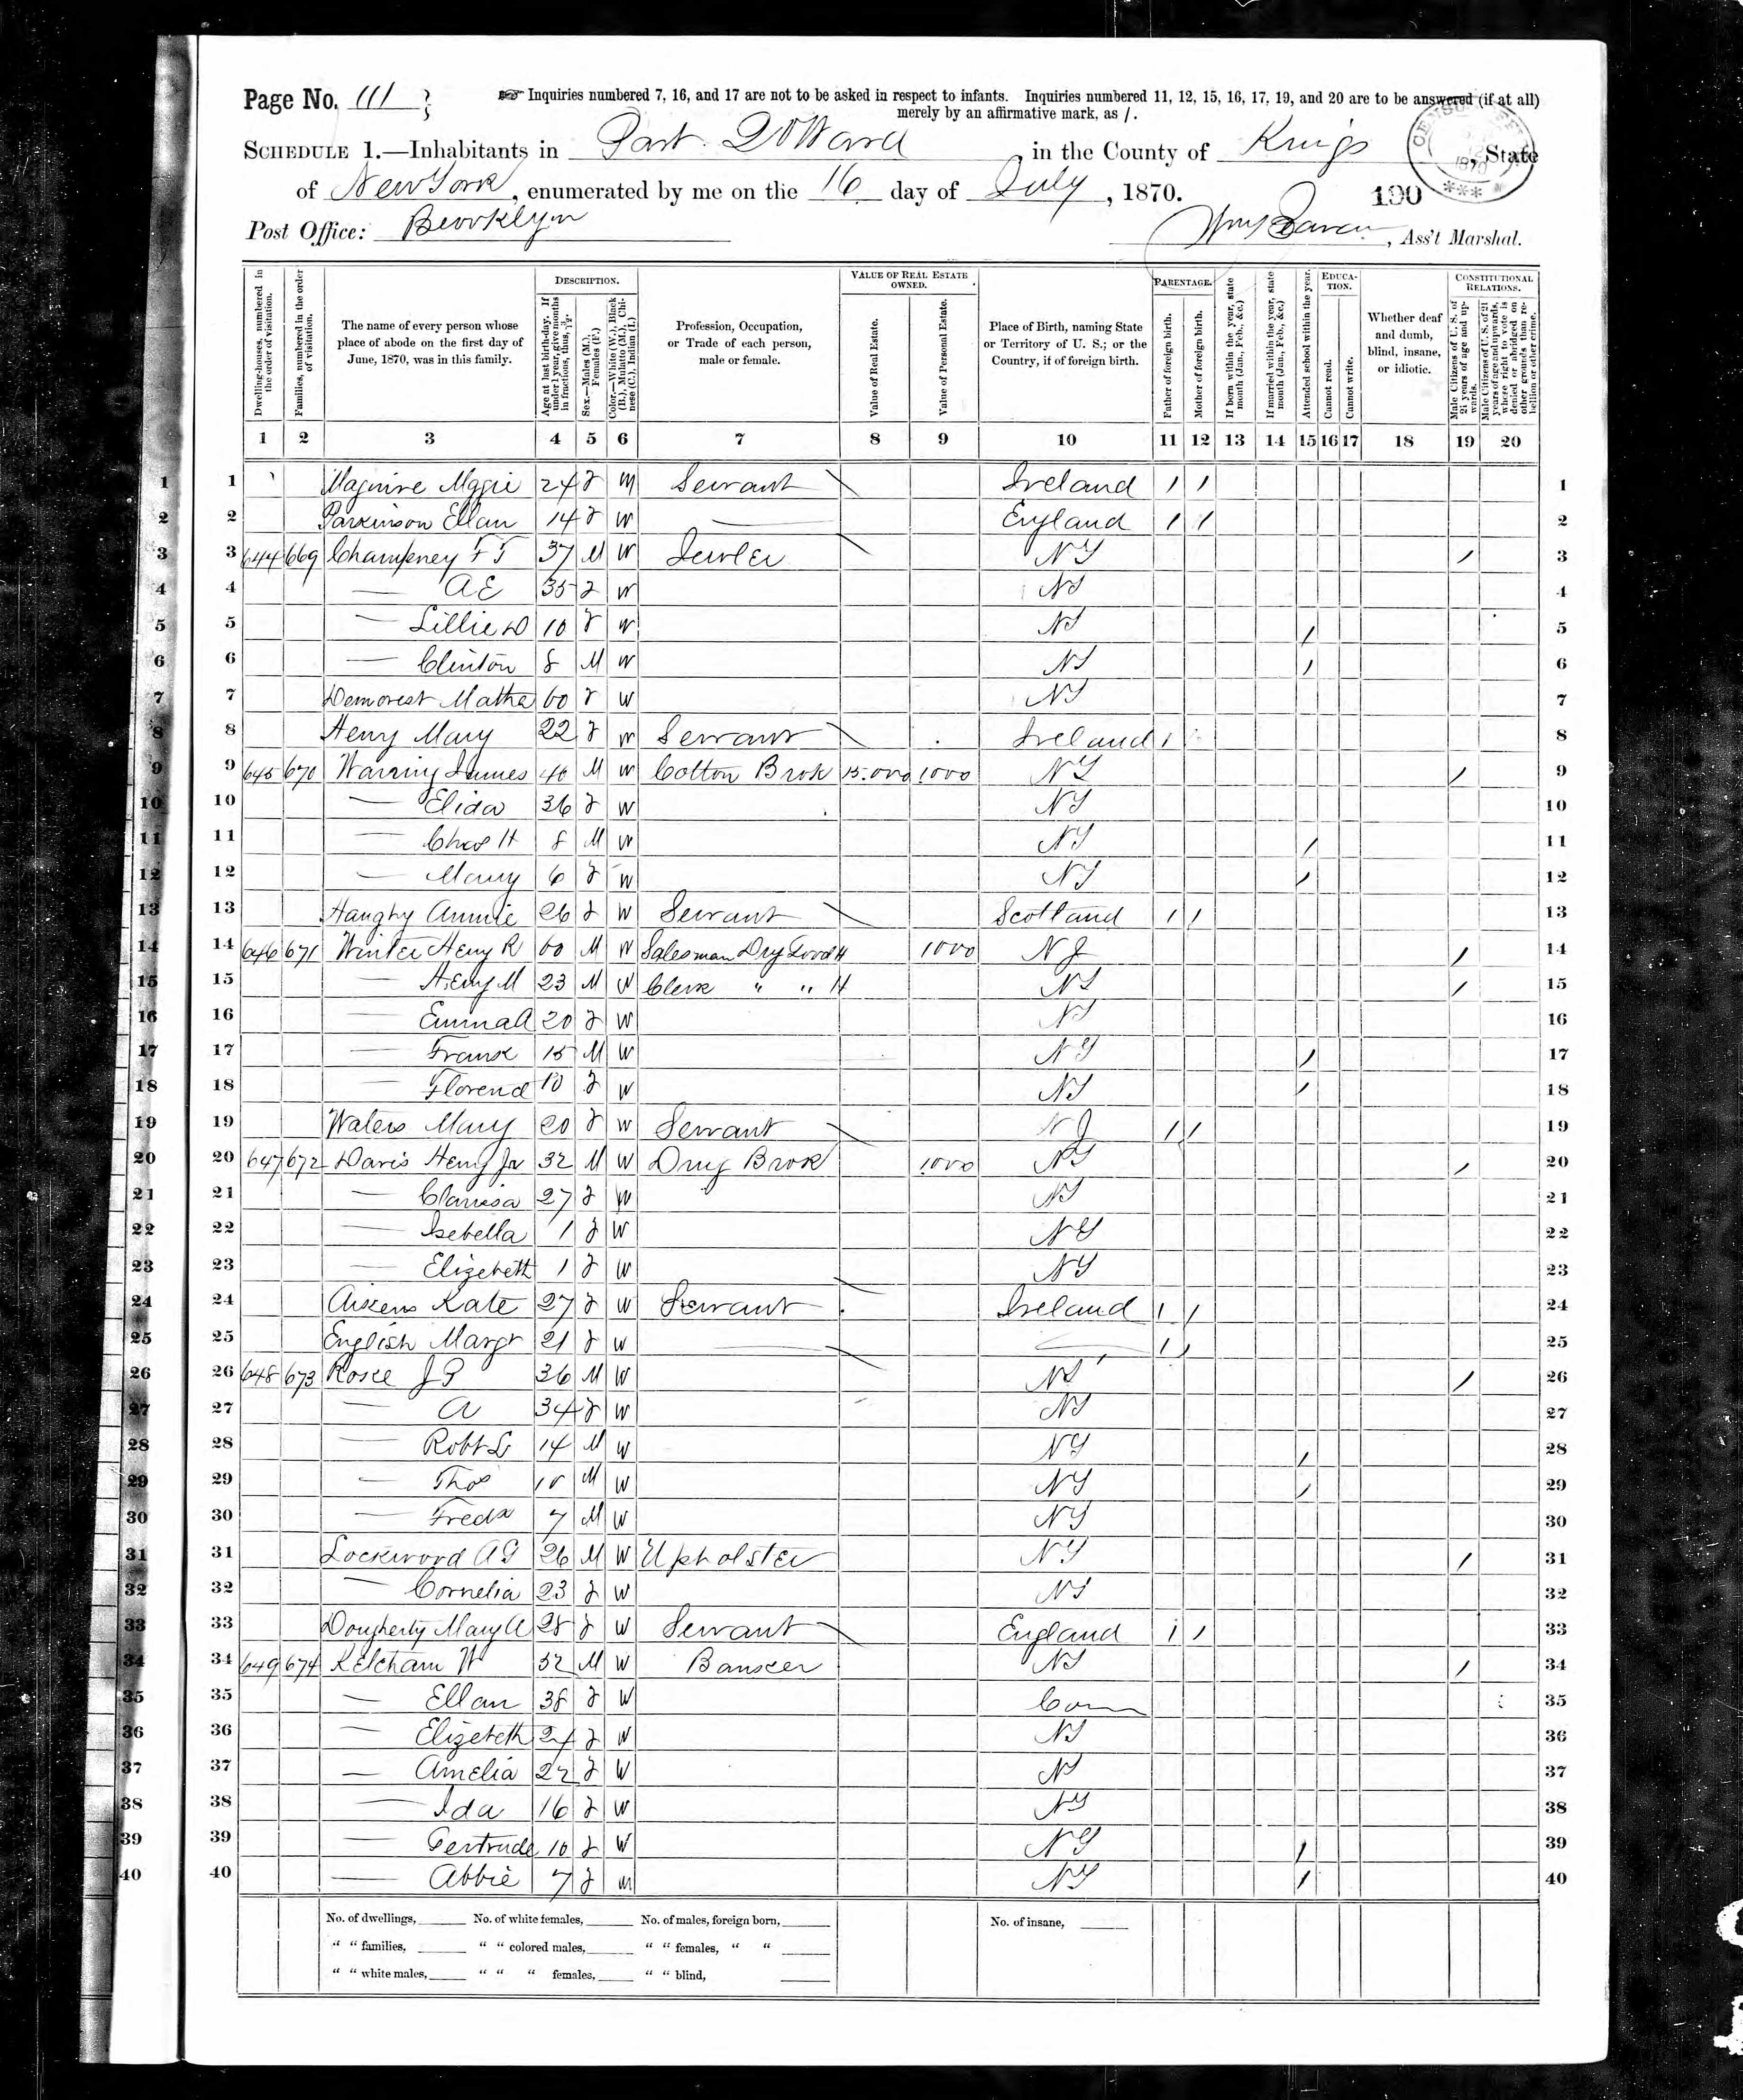 Page No. 111
Inquiries numbered 7, 16, and 17 are not to be asked in respect to infants. Inquiries numbered 11, 12, 15, 16, 17, 19, and 20 are to be answered (if at all)
merely by an affirmative mark, as /.
SCHEDULE 1.—Inhabitants in Part Ward, in the County of Kings, State
of New York, enumerated by me on the 16 day of July, 1870.
190
CENSUS 1870 ***
Post Office: Brooklyn
Wm, Ass't Marshal.
Dwelling-houses, numbered in the order of visitation.
Families, numbered in the order of visitation.
The name of every person whose place of abode on the first day of June, 1870, was in this family.
DESCRIPTION.
Age at last birth-day. If under 1 year, give months in fractions, thus, 3/12.
Sex.—Males (M.), Females (F.)
Color.—White (W.), Black (B.), Mulatto (M.), Chinese (C.), Indian (I.)
Profession, Occupation, or Trade of each person, male or female.
VALUE OF REAL ESTATE OWNED.
Value of Real Estate.
Value of Personal Estate.
Place of Birth, naming State or Territory of U. S.; or the Country, if of foreign birth.
PARENTAGE.
Father of foreign birth.
Mother of foreign birth.
If born within the year, state month (Jan., Feb., &c.)
If married within the year, state month (Jan., Feb., &c.)
Attended school within the year.
EDUCATION.
Cannot read.
Cannot write.
Whether deaf and dumb, blind, insane, or idiotic.
CONSTITUTIONAL RELATIONS.
Male Citizens of U. S. of 21 years of age and upwards.
Male Citizens of U. S. of 21 years of age and upwards, where right to vote is denied or abridged on other grounds than rebellion or other crime.
1 2 3 4 5 6 7 8 9 10 11 12 13 14 15 16 17 18 19 20
1 1 Maguire Mggie 24 F W Servant Ireland / / 1
2 2 Parkinson Ellan 14 F W — England / / 2
3 3 644 669 Champney F T 37 M W Jewler NY / 3
4 4 — A E 35 F W NY 4
5 5 — Lillie D 10 F W NY / 5
6 6 — Clinton 8 M W NY / 6
7 7 Demorest Matha 60 F W NY 7
8 8 Henry Mary 22 F W Servant Ireland / 8
9 9 645 670 Warring James 40 M W Cotton Brok 15.000 1000 NY / 9
10 10 — Elida 36 F W NY 10
11 11 — Chas H 8 M W NY / 11
12 12 — Mary 6 F W NY / 12
13 13 Haughy Annie 26 F W Servant Scotland / / 13
14 14 646 671 Winter Henry R 60 M W Salesman Dry Good H 1000 NJ / 14
15 15 — Henry M 23 M W Clerk " " H NY / 15
16 16 — Emma A 20 F W NY 16
17 17 — Frank 15 M W NY / 17
18 18 — Florend 10 F W NY / 18
19 19 Waters Mary 20 F W Servant NJ / / 19
20 20 647 672 Davis Henry Jr 32 M W Drug Brok 1000 NY / 20
21 21 — Clarissa 27 F W NY 21
22 22 — Isebella 1 F W NY 22
23 23 — Elizebeth 1 F W NY 23
24 24 Aikens Kate 27 F W Servant Ireland / / 24
25 25 English Margt 21 F W — — / / 25
26 26 648 673 J P 36 M W NY / 26
27 27 — A 34 F W NY 27
28 28 — Robt L 14 M W NY / 28
29 29 — Thos 10 M W NY / 29
30 30 — Fredk 7 M W NY 30
31 31 Lockwood A G 26 M W Upholster NY / 31
32 32 — Cornelia 23 F W NY 32
33 33 Dougherty Mary A 28 F W Servant England / / 33
34 34 649 674 Ketcham W 52 M W Banker NY / 34
35 35 — Ellan 38 F W Con 35
36 36 — Elizebeth 24 F W NY 36
37 37 — Amelia 22 F W NY 37
38 38 — Ida 16 F W NY 38
39 39 — Gertrude 10 F W NY / 39
40 40 — Abbie 7 F W NY / 40
No. of dwellings, No. of white females, No. of males, foreign born, No. of insane,
" " families, " " colored males, " " females, " "
" " white males, " " " females, " " blind,